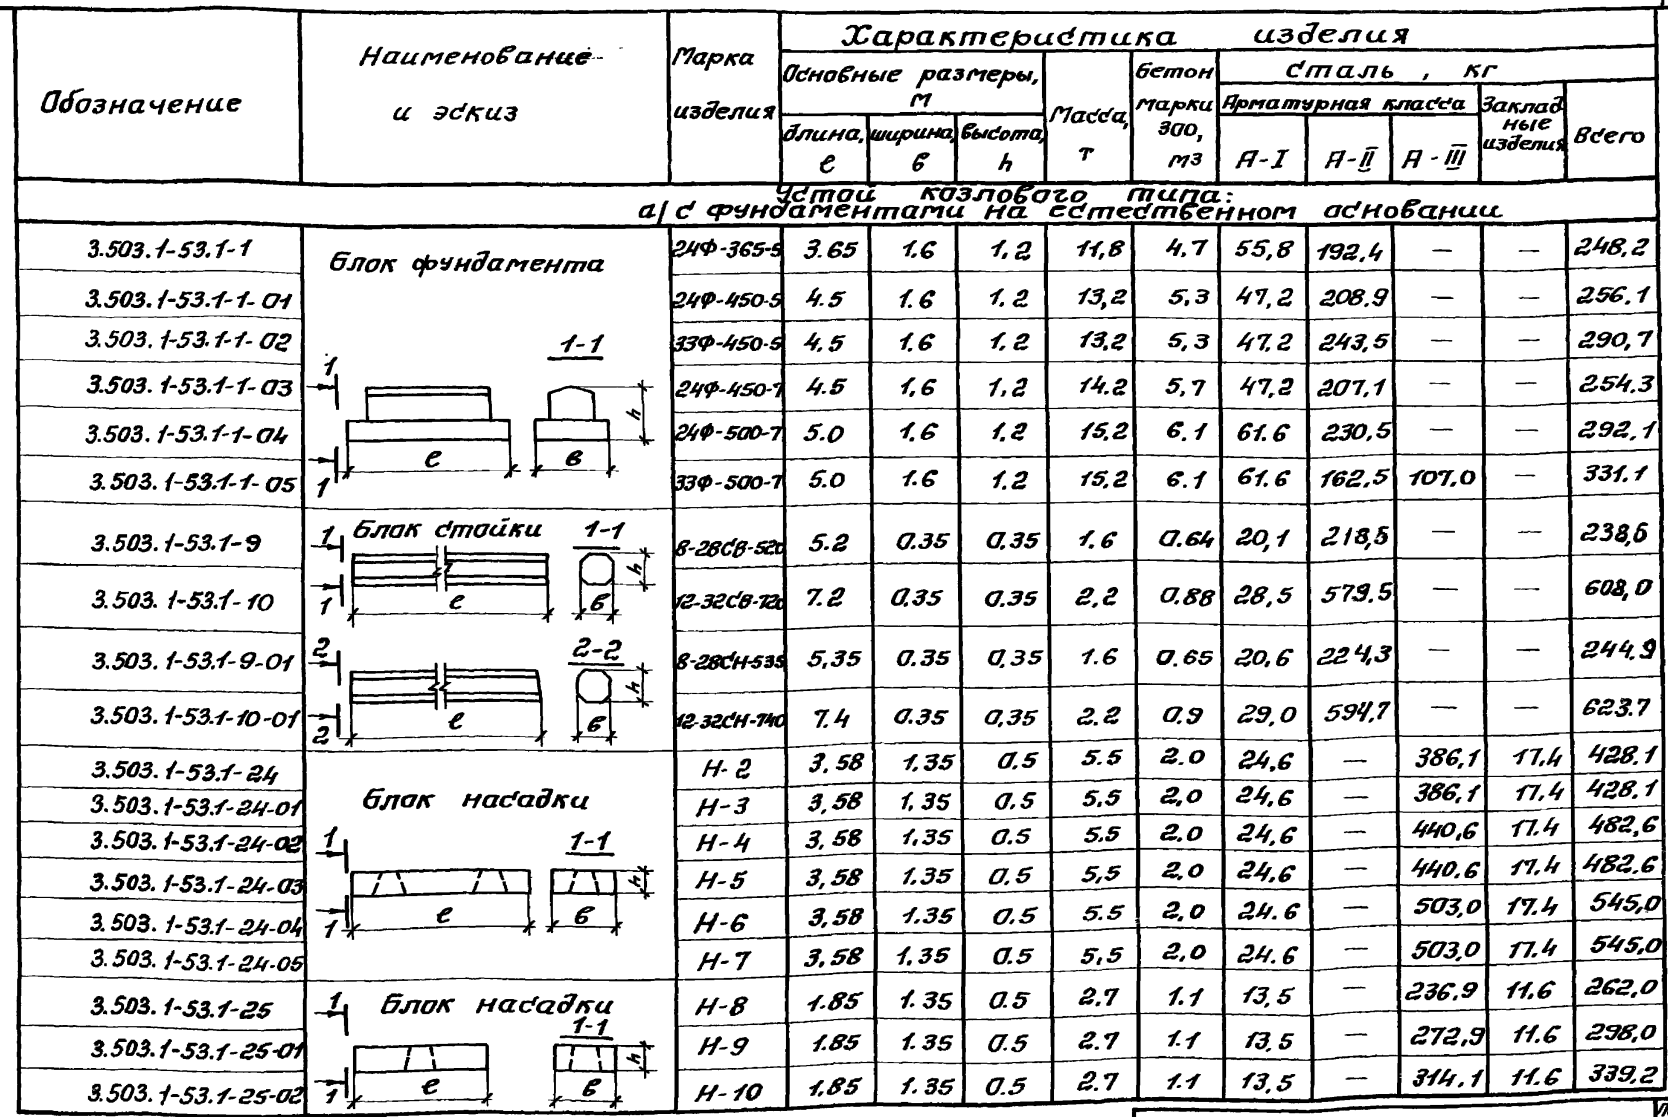 Обозначение
Наименование
и эскиз
Марка
изделия
Характеристика изделия
Основные размеры, м
длина, ℓ
ширина, в
высота, h
Масса, т
Бетон марки 300, м3
Сталь, кг
Арматурная класса
А-I
А-II
А-III
Закладные изделия
Всего
Устой козлового типа:
а/ с фундаментами на естественном основании
3.503.1-53.1-1 24Ф-365-5 3.65 1.6 1.2 11,8 4.7 55,8 192.4 — — 248,2
Блок фундамента
3.503.1-53.1-1-01 24Ф-450-5 4.5 1.6 1.2 13,2 5,3 47,2 208.9 — — 256.1
3.503.1-53.1-1-02 33Ф-450-5 4,5 1.6 1.2 13,2 5,3 47.2 243,5 — — 290,7
1-1
1
3.503.1-53.1-1-03 24Ф-450-7 4.5 1,6 1,2 14.2 5,7 47,2 207,1 — — 254.3
h
3.503.1-53.1-1-04 24Ф-500-7 5.0 1,6 1.2 15,2 6.1 61.6 230,5 — — 292,1
ℓ в
3.503.1-53.1-1-05 33Ф-500-7 5.0 1.6 1.2 15,2 6.1 61.6 162,5 107,0 — 331.1
1
Блок стойки 1-1
1
3.503.1-53.1-9 8-28СВ-520 5.2 0.35 0.35 1.6 0.64 20,1 218,5 — — 238,6
h
3.503.1-53.1-10 12-32СВ-720 7.2 0,35 0.35 2,2 0.88 28,5 579.5 — — 608,0
1 ℓ в
2 2-2
3.503.1-53.1-9-01 8-28СН-535 5,35 0.35 0,35 1.6 0.65 20,6 224,3 — — 244.9
h
3.503.1-53.1-10-01 12-32СН-740 7.4 0.35 0,35 2.2 0,9 29,0 594,7 — — 623.7
2 ℓ в
3.503.1-53.1-24 Н-2 3.58 1,35 0.5 5.5 2.0 24,6 — 386,1 17.4 428.1
Блок насадки
3.503.1-53.1-24-01 Н-3 3,58 1,35 0.5 5,5 2,0 24,6 — 386,1 17,4 428.1
3.503.1-53.1-24-02 Н-4 3,58 1.35 0.5 5.5 2.0 24,6 — 440,6 17.4 482,6
1 1-1
3.503.1-53.1-24-03 Н-5 3,58 1.35 0.5 5,5 2,0 24,6 — 440.6 17,4 482.6
h
3.503.1-53.1-24-04 Н-6 3,58 1.35 0.5 5.5 2,0 24.6 — 503,0 17.4 545,0
1 ℓ в
3.503.1-53.1-24-05 Н-7 3,58 1,35 0.5 5,5 2,0 24.6 — 503,0 17.4 545,0
1 Блок насадки
3.503.1-53.1-25 Н-8 1.85 1.35 0.5 2.7 1.1 13,5 — 236.9 11.6 262,0
1-1
3.503.1-53.1-25-01 Н-9 1.85 1.35 0.5 2.7 1.1 13,5 — 272,9 11.6 298,0
h
3.503.1-53.1-25-02 Н-10 1,85 1.35 0.5 2.7 1.1 13,5 — 314.1 11.6 339,2
1 ℓ в